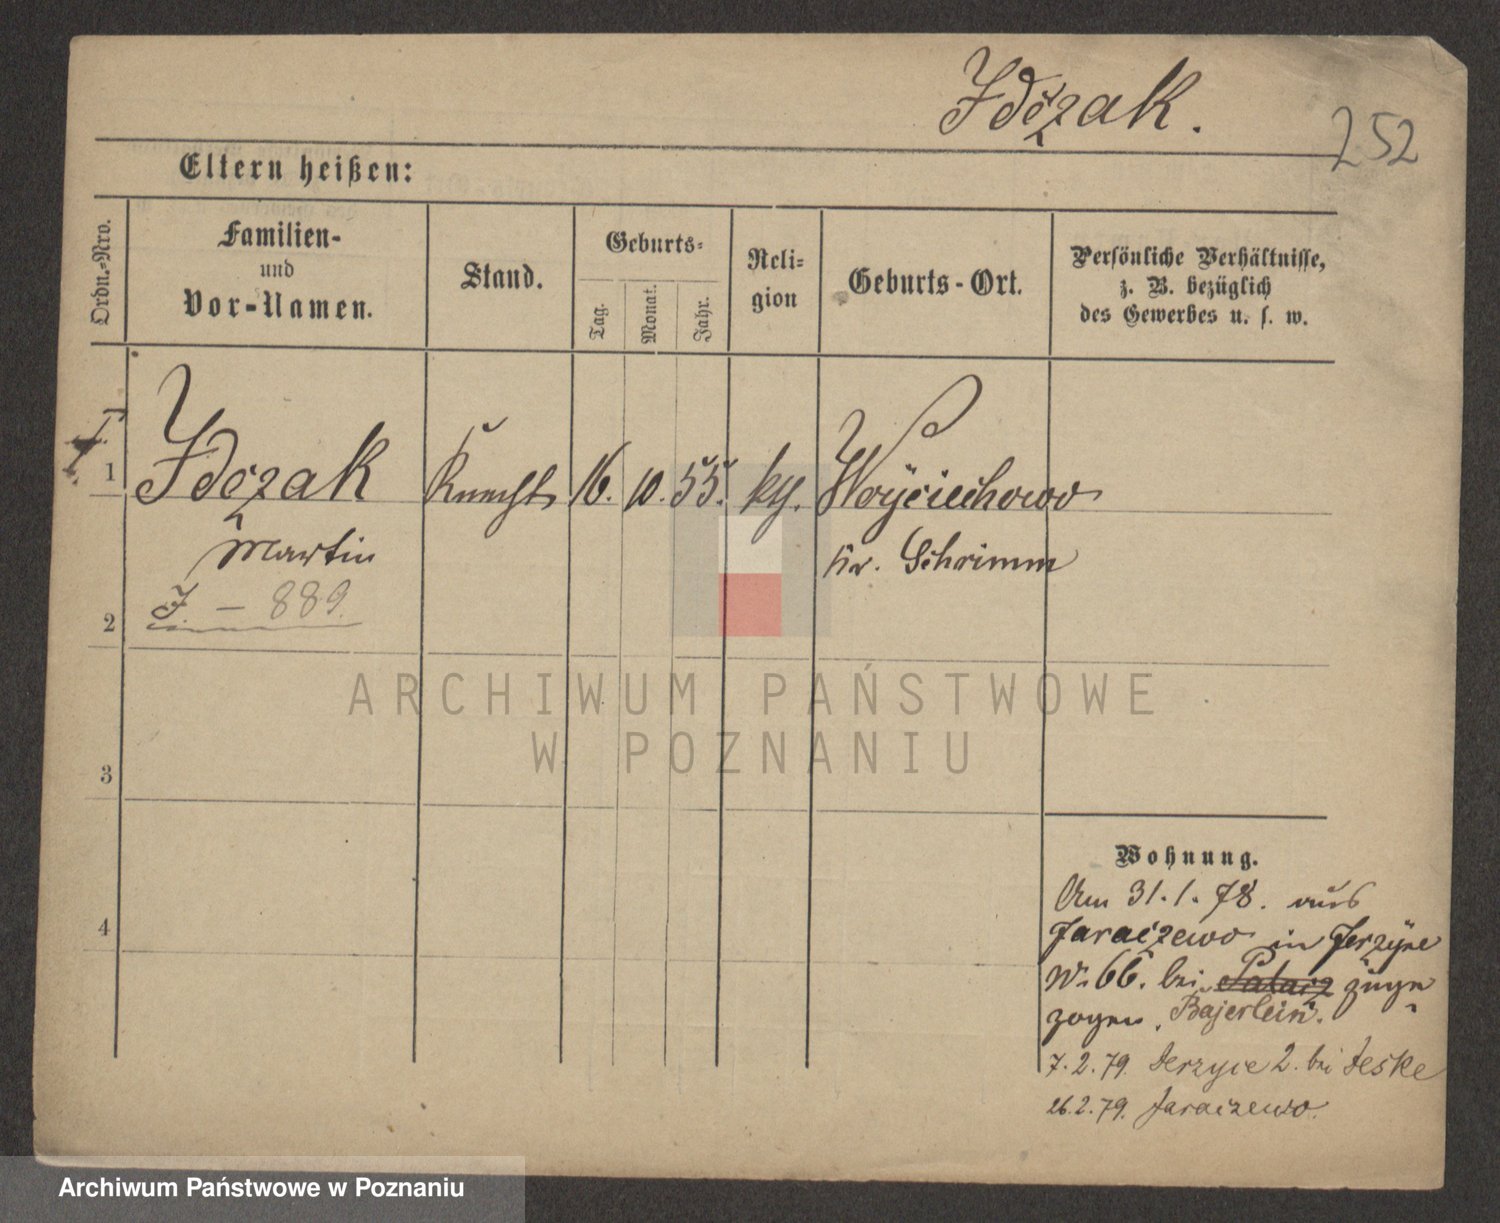 Idczak.
252
Eltern heißen:
Ordn.-Nro.
Familien-
und
Vor-Namen.
Stand.
Geburts-
Tag.
Monat.
Jahr.
Reli-
gion
Geburts-Ort.
Persönliche Verhältnisse,
z. B. bezüglich
des Gewerbes u. s. w.
1 Idczak Knecht 16. 10. 55. Woyciechowo
Martin Kr. Schrimm
J. — 889.
2
3
4
Wohnung.
Am 31.1.78. aus
Jaraczewo in Jerzyce
N. 66. bei Palacz zuge-
zogen. Bajerlein.
7.2.79. Jerzyce 2. bei Jeske
26.2.79. Jaraczewo.
ARCHIWUM PAŃSTWOWE
W POZNANIU
Archiwum Państwowe w Poznaniu